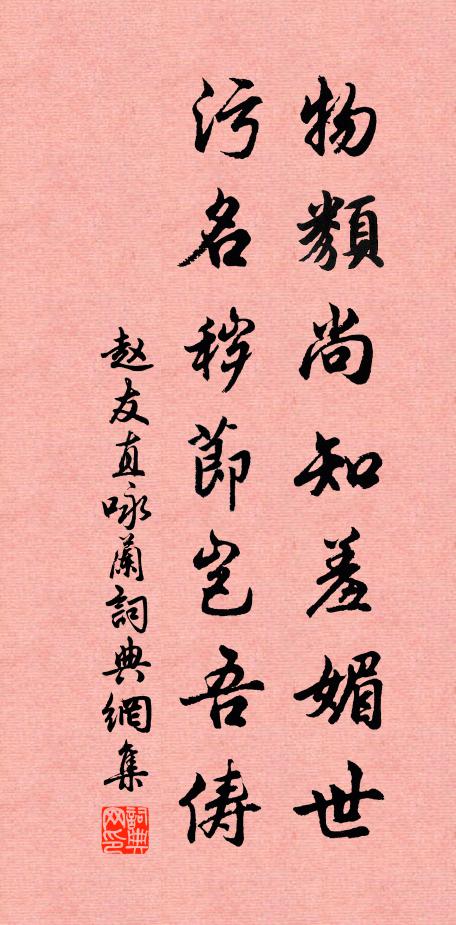 物類尚知羞媚世
污名秽節岂吾俦
赵友直咏蘭詞典網集
詞典网印